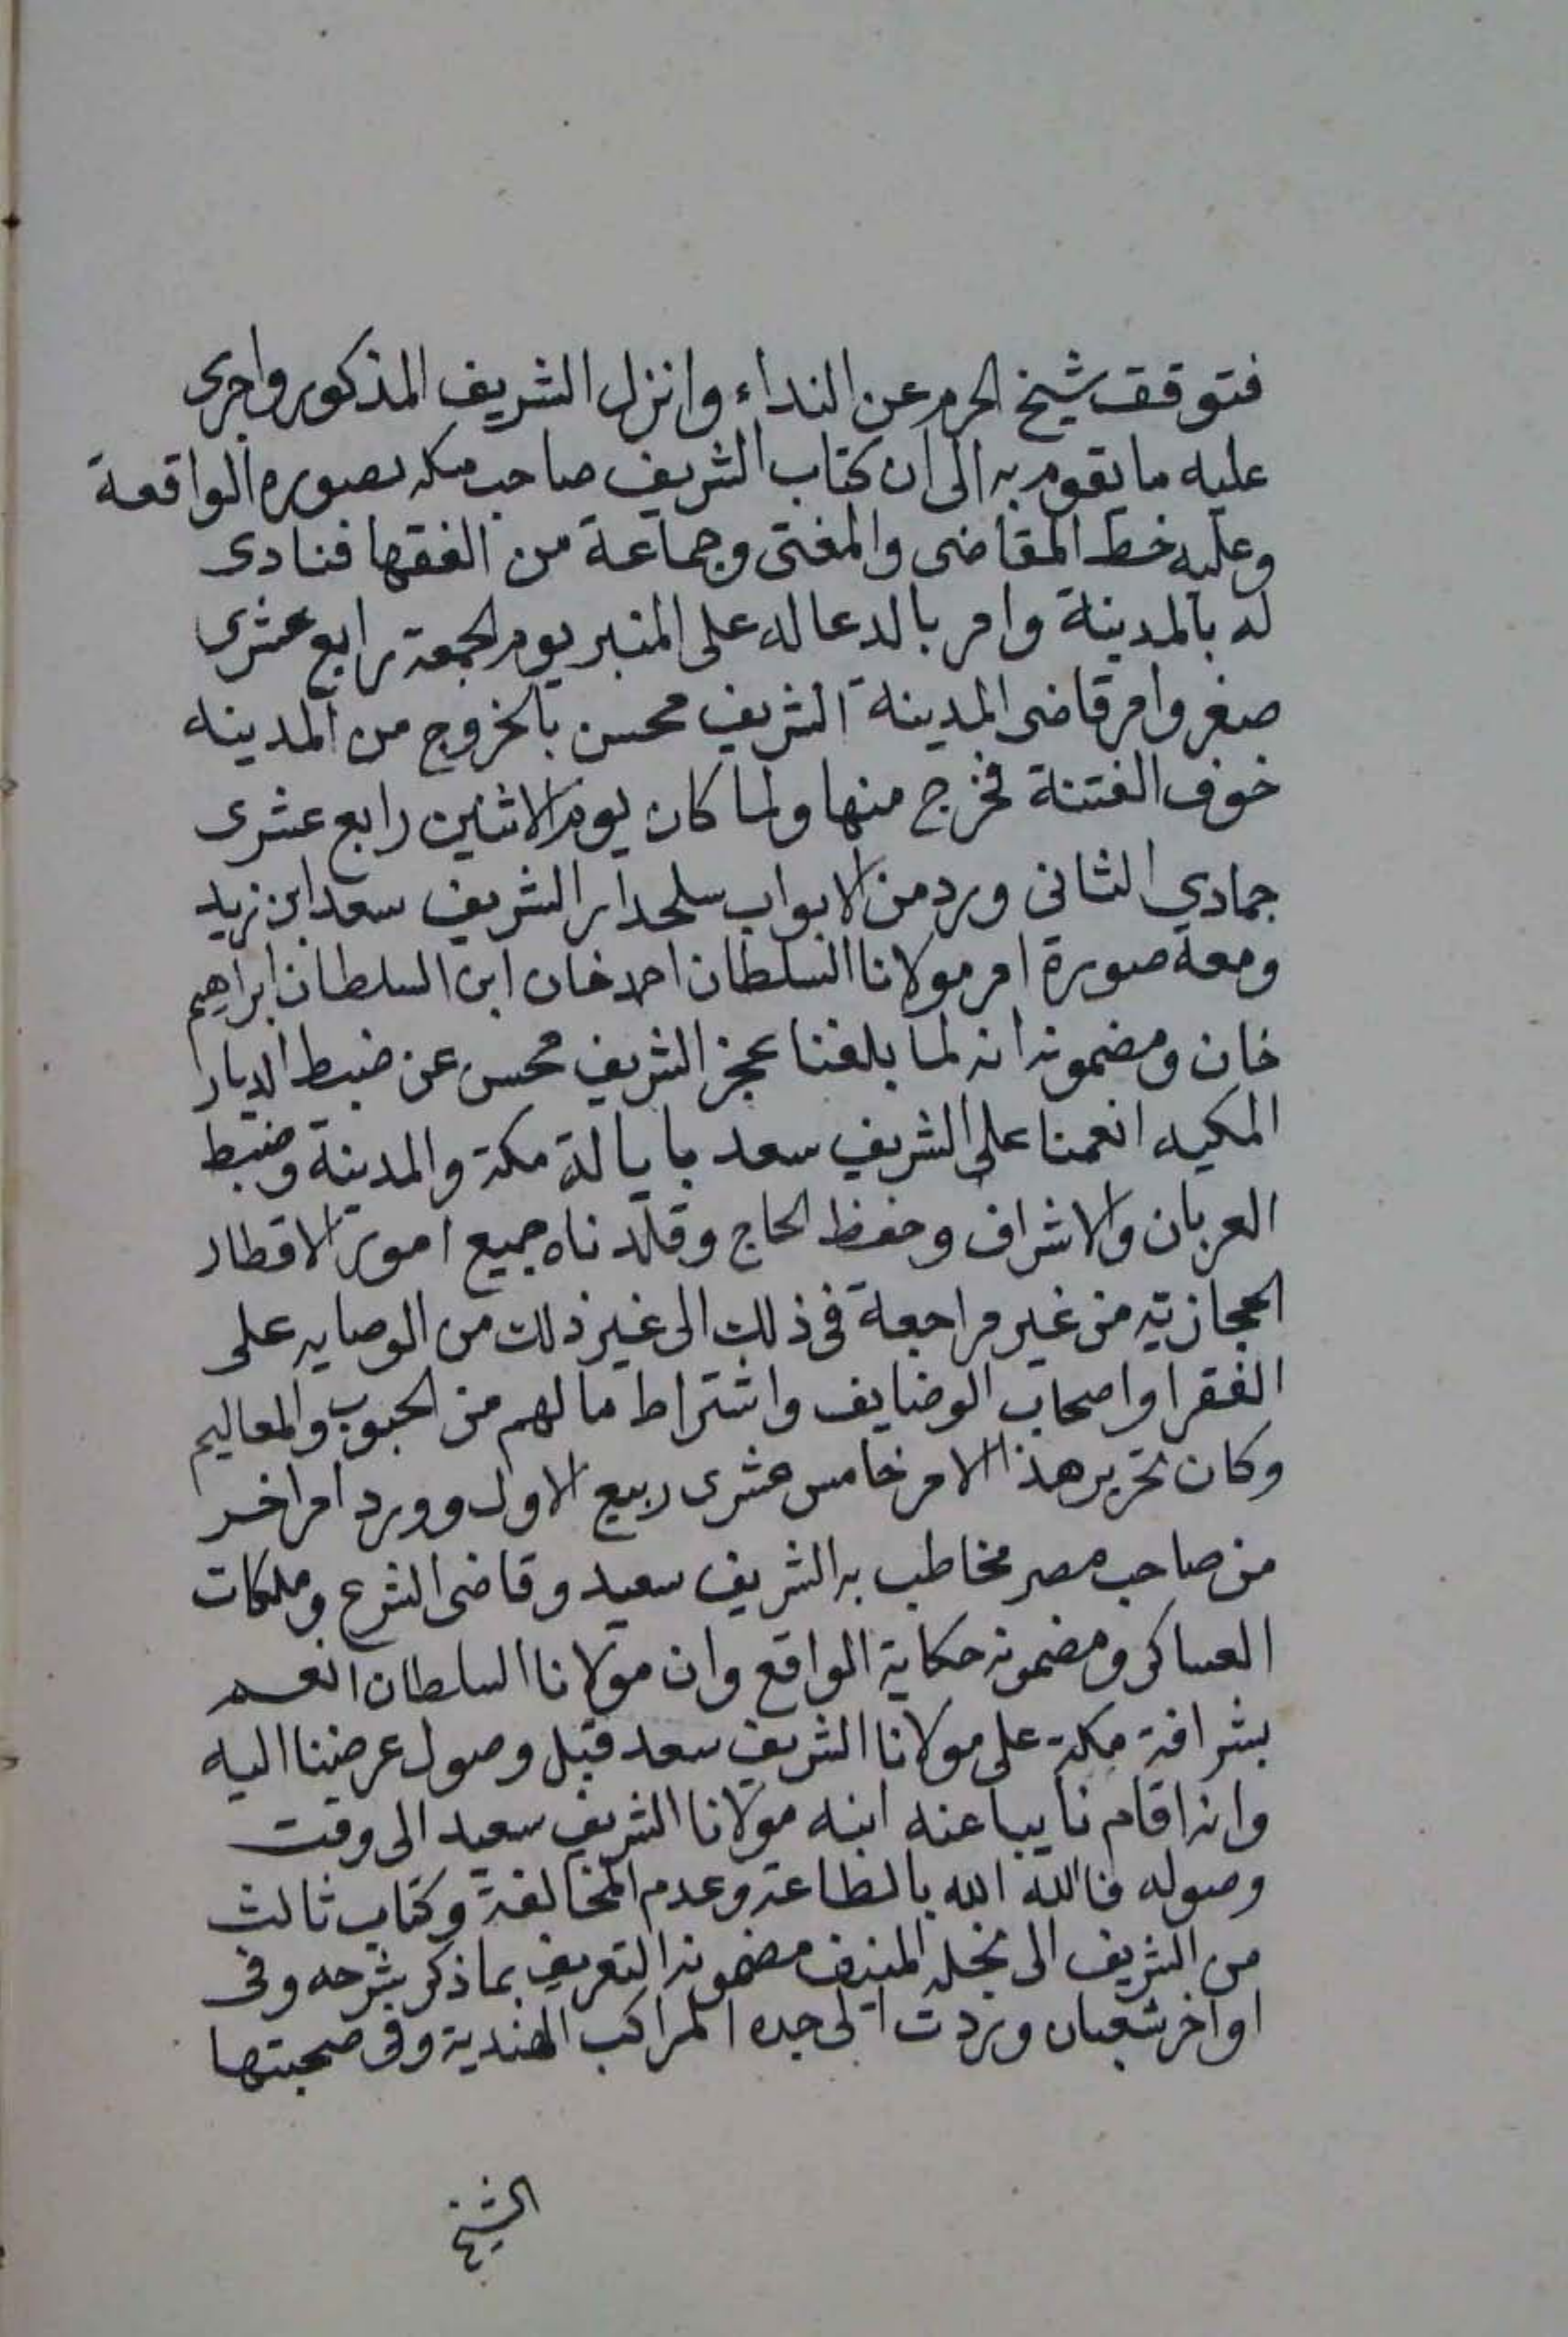 فتوقف شيخ الحرم عن النداء وانزل الشريف المذكور واجرى
عليه ما يقوم به الى ان كتاب الشريف صاحب مكه بصوره الواقعة
وعليه خط القاضى والمفتى وجماعة من الفقها فنادى
له بالمدينة وامر بالدعا له على المنبر يوم الجمعة رابع عشرى
صفر وامر قاضى المدينة الشريف محسن بالخروج من المدينه
خوف الفتنة فخرج منها ولما كان يوم الاثنين رابع عشرى
جمادي الثانى ورد من الابواب سلحدار الشريف سعد ابن زيد
ومعه صورة امر مولانا السلطان احمد خان ابن السلطان ابراهيم
خان ومضمونه انه لما بلغنا عجز الشريف محسن عن ضبط الديار
المكيه انعمنا على الشريف سعد بايالة مكة والمدينة وضبط
العربان والاشراف وحفظ الحاج وقلدناه جميع امور الاقطار
الحجازية من غير مراجعة فى ذلك الى غير ذلك من الوصايه على
الفقرا واصحاب الوضايف واشتراط مالهم من الحبوب والمعاليم
وكان تحرير هذا الامر خامس عشرى ربيع الاول وورد امر اخر
من صاحب مصر مخاطب به الشريف سعيد وقاضى الشرع وملكات
العساكر ومضمونه حكاية الواقع وان مولانا السلطان انعم
بشرافة مكة على مولانا الشريف سعد قبل وصول عرضنا اليه
وانه اقام نايبا عنه ابنه مولانا الشريف سعيد الى وقت
وصوله فالله الله بالطاعة وعدم المخالفة وكتاب ثالث
من الشريف الى نجله المنيف مضمونه التعريف بما ذكر بشرحه وفى
اواخر شعبان وردت الى جده المراكب الهندية وفى صحبتها
الشيخ